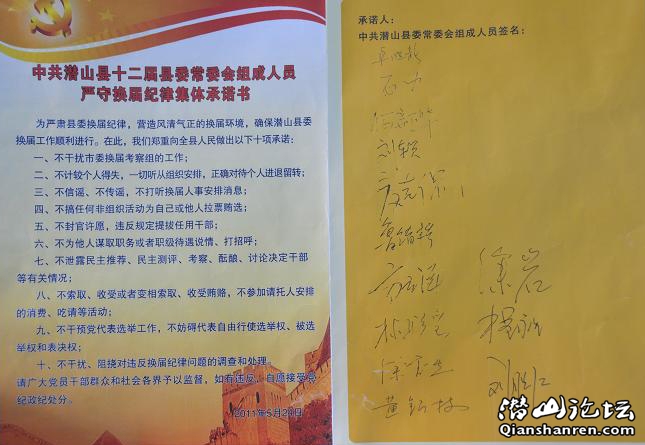 中共潜山县十二届县委常委会组成人员
严守换届纪律集体承诺书
为严肃县委换届纪律，营造风清气正的换届环境，确保潜山县委
换届工作顺利进行。在此，我们郑重向全县人民做出以下十项承诺：
一、不干扰市委换届考察组的工作；
二、不计较个人得失，一切听从组织安排，正确对待个人进退留转；
三、不信谣、不传谣，不打听换届人事安排消息；
四、不搞任何非组织活动为自己或他人拉票贿选；
五、不封官许愿，违反规定提拔任用干部；
六、不为他人谋取职务或者职级待遇说情、打招呼；
七、不泄露民主推荐、民主测评、考察、酝酿、讨论决定干部
等有关情况；
八、不索取、收受或者变相索取、收受贿赂，不参加请托人安排
的消费、吃请等活动；
九、不干预党代表选举工作，不妨碍代表自由行使选举权、被选
举权和表决权；
十、不干扰、阻挠对违反换届纪律问题的调查和处理。
请广大党员干部群众和社会各界予以监督，如有违反，自愿接受党
纪政纪处分。
2011年5月24日
承诺人：
中共潜山县委常委会组成人员签名：
刘颖
徐岩
刘胜仁
潜山论坛
Qianshanren.com